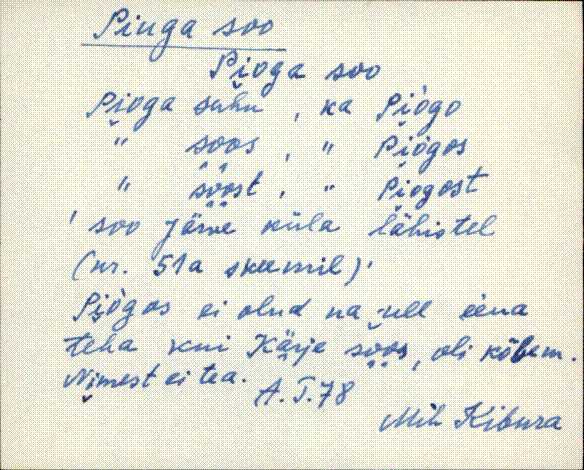 Piuga soo
Pi̮oga soo
Pi̮oga suhu, ka Pi̮ògo
" soos, " Pi̮ògos
" soost, " Pi̮ogost
' soo Järve küla lähistel
(nr. 51a skeemil)'
Pi̮ògos ei olnd na ull eena
teha kui Kärje soos, oli kõbem.
Nimest ei tea.
A. T. 78
Mih Kibura